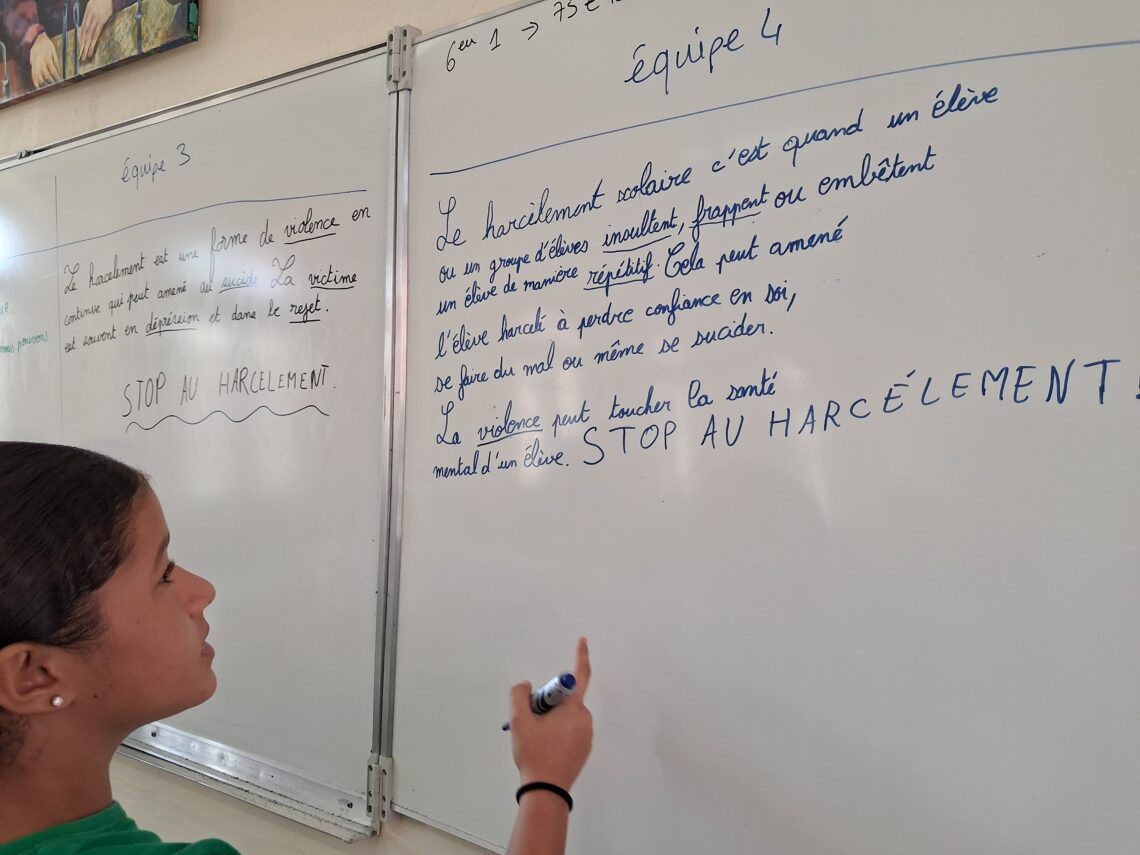 équipe 3
Le harcelement est une forme de violence en
continue qui peut amené au sucide La victime
est souvent en dépréssion et dans le rejet.
STOP AU HARCELEMENT.
nous pouvons
6eu 1 → 75€
équipe 4
Le harcèlement scolaire c'est quand un élève
ou un groupe d'élèves insultent, frappent ou embêtent
un élève de manière répétitif. Cela peut amené
l'élève harcelé à perdre confiance en soi,
se faire du mal ou même se sucider.
La violence peut toucher la santé
mental d'un élève. STOP AU HARCÉLEMENT!